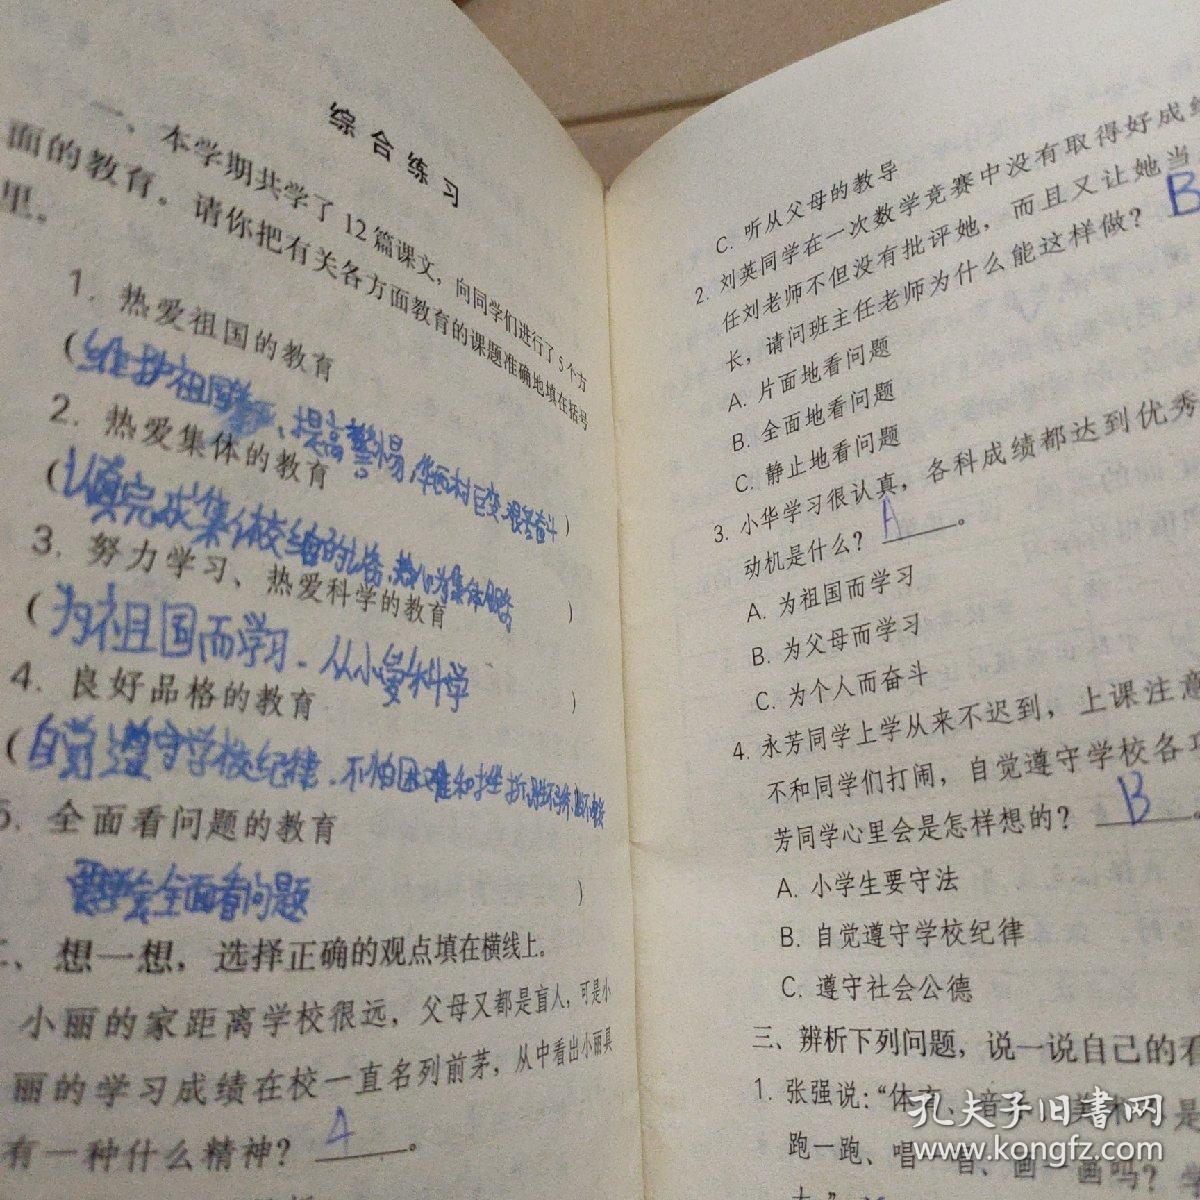 综合练习
一、本学期共学了12篇课文，向同学们进行了5个方
面的教育。请你把有关各方面教育的课题准确地填在括号
里。
1. 热爱祖国的教育
(维护祖国 、提高警惕,华西村巨变、艰苦奋斗)
2. 热爱集体的教育
(认真完成集体交给的 )
3. 努力学习、热爱科学的教育
(为祖国而学习、从小爱科学)
4. 良好品格的教育
(自觉遵守学校纪律、不怕困难和挫折、
5. 全面看问题的教育
要学会全面看问题)
二、想一想，选择正确的观点填在横线上。
小丽的家距离学校很远，父母又都是盲人，可是小
丽的学习成绩在校一直名列前茅，从中看出小丽具
有一种什么精神？A。
C. 听从父母的教导
2. 刘英同学在一次数学竞赛中没有取得好成绩
任刘老师不但没有批评她，而且又让她当
长，请问班主任老师为什么能这样做？B
A. 片面地看问题
B. 全面地看问题
C. 静止地看问题
3. 小华学习很认真，各科成绩都达到优秀
动机是什么？A。
A. 为祖国而学习
B. 为父母而学习
C. 为个人而奋斗
4. 永芳同学上学从来不迟到，上课注意
不和同学们打闹，自觉遵守学校各项
芳同学心里会是怎样想的？B。
A. 小学生要守法
B. 自觉遵守学校纪律
C. 遵守社会公德
三、辨析下列问题，说一说自己的看
1. 张强说：“体育、音 、美术 是
跑一跑、唱一唱、画一画吗？学
孔夫子旧书网
www.kongfz.com